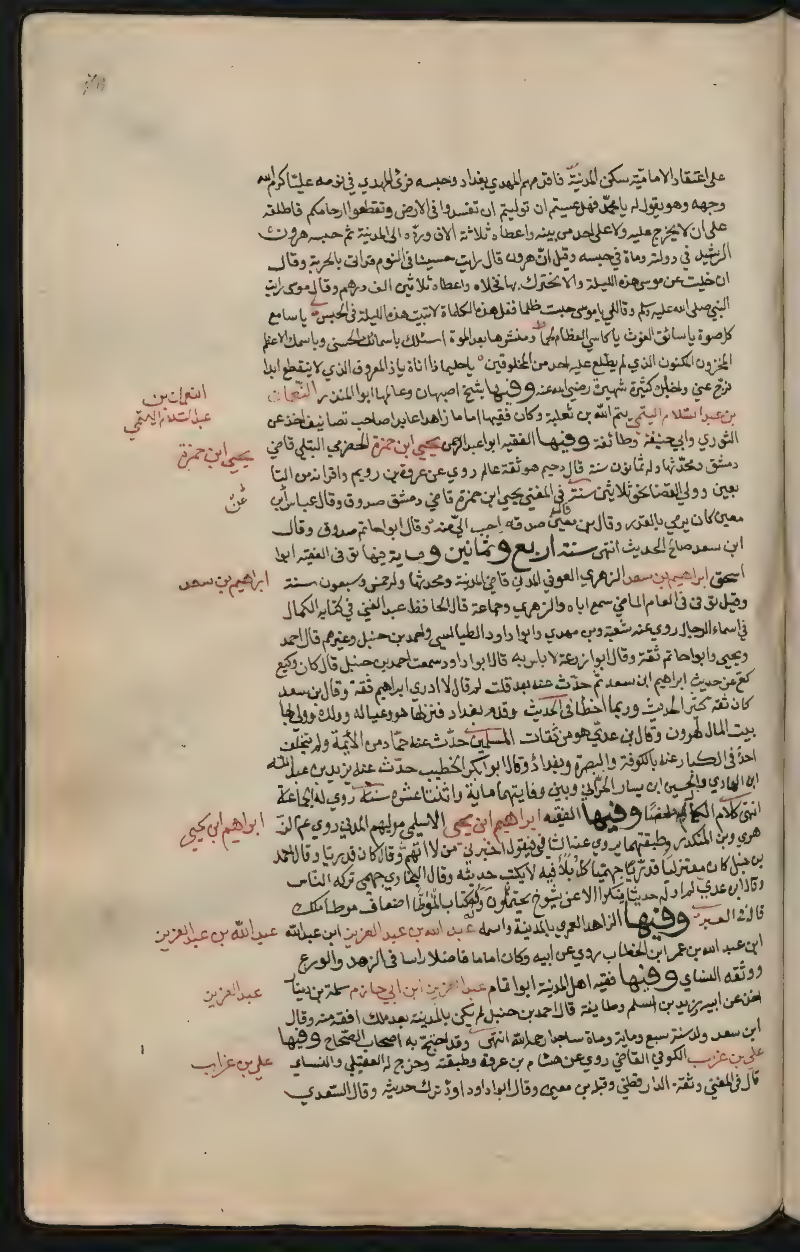 على اعتقاد الامامية سكن المدينة فاقدمه المهدي بغداد وحبسه فرئ المهدي في نومه عليًّا كرم الله
وجهه وهو يقول له يا محمد فهل عسيتم ان توليتم ان تفسدوا في الارض وتقطعوا ارحامكم فاطلقه
على ان لا يخرج عليه ولا على احد من بنيه واعطاه ثلاثة الاف ورده الى المدينة ثم حبسه هرون
الرشيد في دولته ومات في حبسه وقيل ان هرون قال رايت حسينا في النوم قد اتى بالحربة وقال
ان خليت عن موسى هذه الليلة والا نحرتك بها فخلاه واعطاه ثلاثين الف درهم وقال موسى رايت
النبي صلى الله عليه وسلم وقال لي يا موسى حبست ظلما فقل هذه الكلمات لا تبيت هذه الليلة في الحبس يا سامع
كل صوت يا سائق الفوت يا كاسي العظام لحما ومنشرها بعد الموت اسئلك باسمائك الحسنى وباسمك الاعظم
المخزون المكنون الذي لم يطلع عليه احد من المخلوقين يا حليما ذا اناة يا ذا المعروف الذي لا ينقطع ابدا
فرج عني واخباره كثيرة شهيرة رضي الله عنه وفيها شيخ اصبهان وعالمها ابو المنذر النعمان
بن عبد السلام التيمي تيم الله بن ثعلبة وكان فقيها اماما زاهدا عابدا صاحب تصانيف اخذ عن
الثوري وابي حنيفة وطائفة وفيها الفقيه ابو عبد الرحمن يحيى ابن حمزة الحضرمي البتلي قاضي
دمشق ومحدثها وله ثمانون سنة قال دحيم هو ثقة عالم روي عن عروة بن رويم واقرانه من التا
بعين وولي القضا نحو ثلاثين سنة في المغني يحيى ابن حمزة قاضي دمشق صدوق وقال عباس ابن
معين كان يرمي بالقدر وقال بن معين صدقه احب الي منه وقال ابو حاتم صدوق وقال
ابن سعد صالح الحديث انتهى سنة اربع وثمانين وماية فيها توفي الفقيه ابو
اسحق ابراهيم بن سعد الزهري العوفي المدني قاضي المدينة ومحدثها وله خمس وسبعون سنة
وقيل توفي في العام الماضي سمع اباه والزهري وجماعة قال الحافظ عبد الغني في كتابه الكمال
في اسماء الرجال روي عنه شعبة وبن مهدي وابو داود الطيالسي واحمد بن حنبل وغيرهم قال احمد
ويحيى وابو حاتم ثقة وقال ابو زرعة لا باس به قال ابو داود سمعت احمد بن حنبل قال كان وكيع
كف عن حديث ابراهيم ابن سعد ثم حدث عنه بعد قلت لم قال لا ادري ابراهيم ثقة وقال بن سعد
كان ثقة كثير الحديث وربما اخطا في الحديث وقدم بغداد فنزلها هو وعياله وولده وولي بها
بيت المال لهرون وقال بن عدي هو من ثقات المسلمين حدث عنه جماعة من الأئمة ولم يتخلف
احد في الكبار عنه بالكوفة والبصرة وبغداد وقال ابو بكر الخطيب حدث عنه يزيد بن عبد الله
ابن الهادي والحسين ابن يسار الحراني وبين وفايتهما ماية واثنتا عشرة سنة روي له الجماعة
انتهى كلام الكمال ملخصًا وفيها الفقيه ابراهيم ابن يحيى الاسلمي مولاهم المدني روي عن الز
هري وبن المنكدر وطبقتهما يروي عنه الشافعي فيقول اخبرني من لا اتهم وقال كان قدريا وقال احمد
بن حنبل كان معتزليا قدريًّا جهميًّا كل بلاء فيه لا يكتب حديثه وقال البخاري جهمي تركه الناس
وقال ابن عدي لم ار له حديثا منكرا الا عن شيوخ يحتملون وله كتاب الموطا اضعاف موطا مالك
قاله في العبر وفيها الزاهد العمري بالمدينة واسمه عبد الله بن عبد العزيز ابن عبد الله
ابن عبد الله بن عمر ابن الخطاب روي عن ابيه وكان اماما فاضلا راسا في الزهد والورع
ووثقه النساي وفيها فقيه اهل المدينة ابو تمام عبد العزيز ابن ابي حازم سلمة بن دينار
اخذ عن ابيه وزيد بن اسلم وطايفة قال احمد بن حنبل لم يكن بالمدينة بعد مالك افقه منه وقال
ابن سعد ولد سنة سبع وماية ومات ساجدا رحمه الله انتهى وقد احتج به اصحاب الصحاح وفيها
علي بن غراب الكوفي القاضي روي عن هشام بن عروة وطبقته وخرج له العقيلي والنساي
قال في المغني وثقه الدارقطني وقبله بن معين وقال ابو داود تركت حديثه وقال السعدي
النعمان بن
عبد السلام التيمي
يحيى ابن حمزة
ابراهيم بن سعد
ابراهيم ابن يحيى
عبد الله بن عبد العزيز
عبد العزيز
علي بن غراب